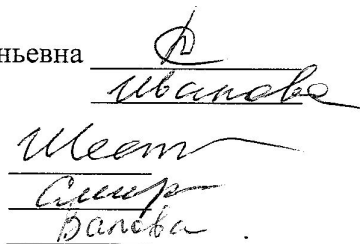 ньевна
Иванова
Шест
Смир
Валова